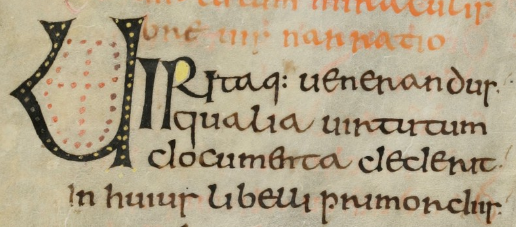 miraculis
breuis narratio
UIR itaq: uenerandus.
qualia uirtutum
documenta dederit.
In huius libelli primordiis.